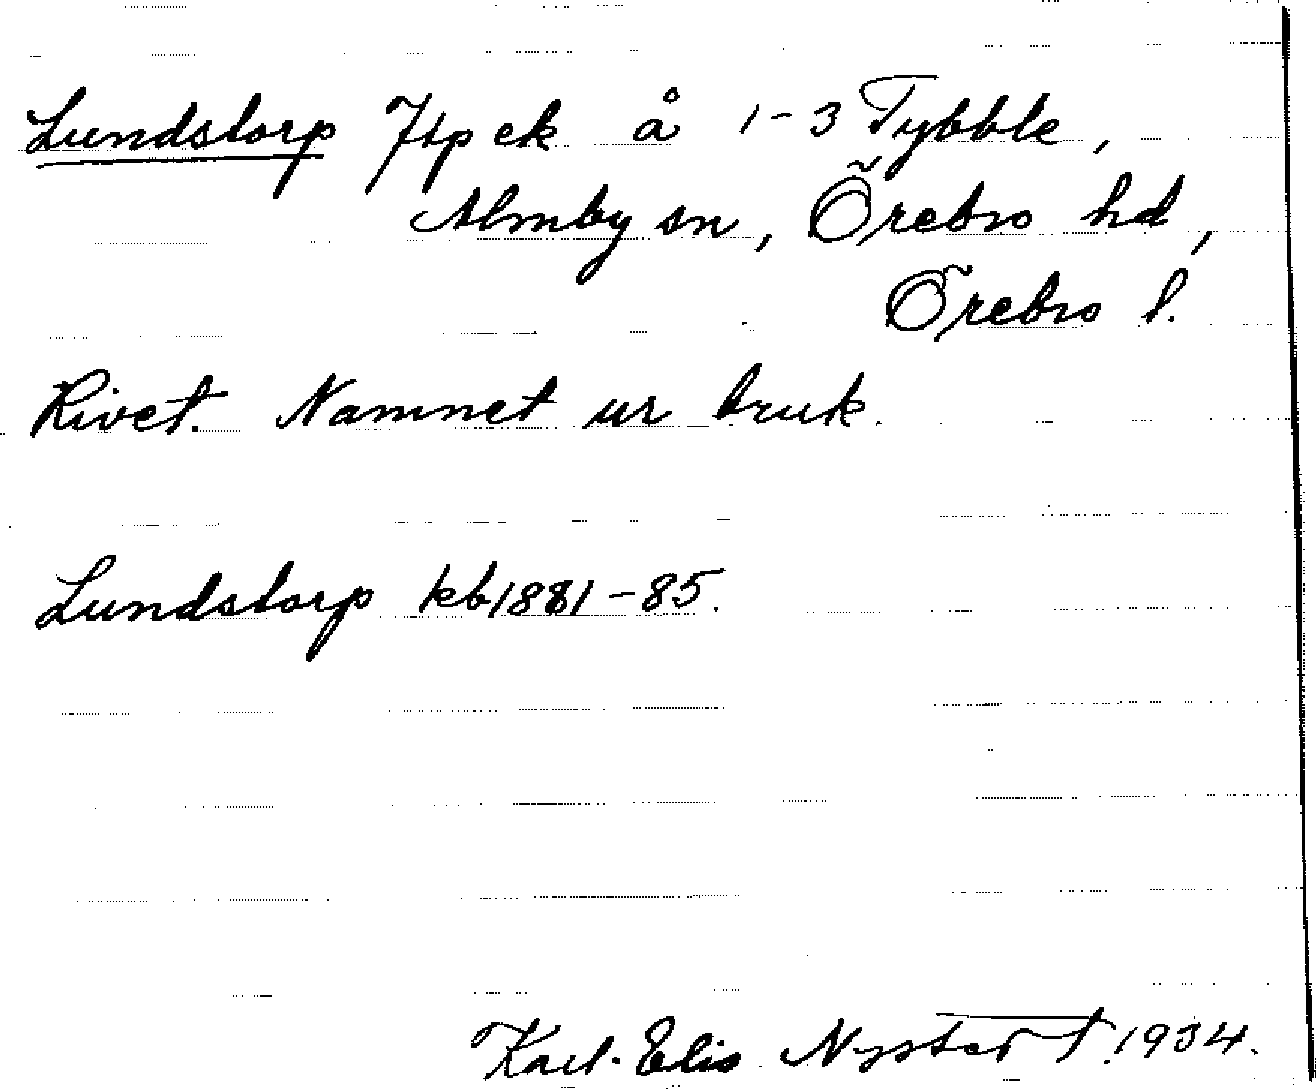 Lundstorp ftp ek å 1-3 Tybble,
Almby sn, Örebro hd,
Örebro l.
Rivet. Namnet ur bruk.
Lundstorp kb 1881-85.
Karl-Elis 1934.